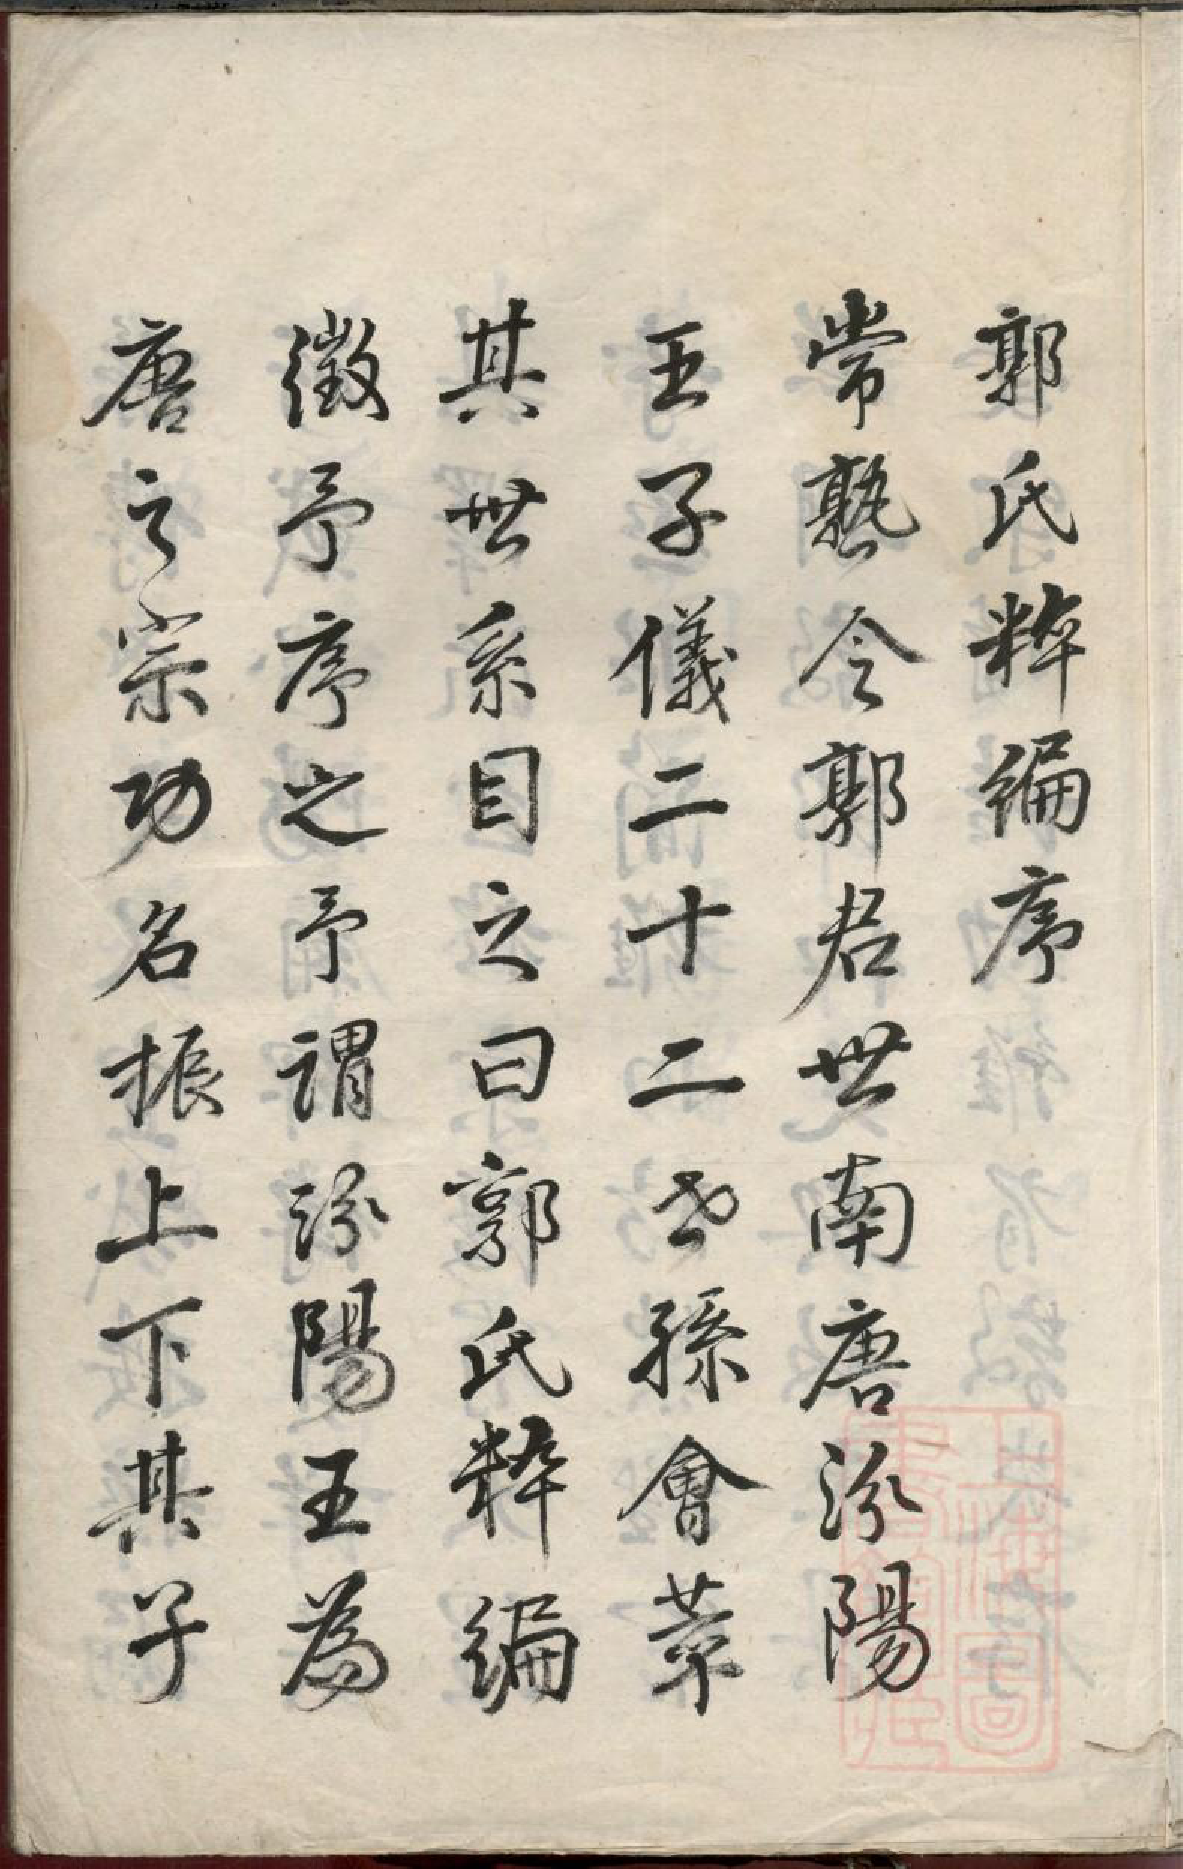 郭氏粹編序
常熟令郭君世南唐汾陽
王子儀二十二世孫會萃
其世系目之曰郭氏粹編
徵予序之予謂汾陽王為
唐之宗功名振上下其子